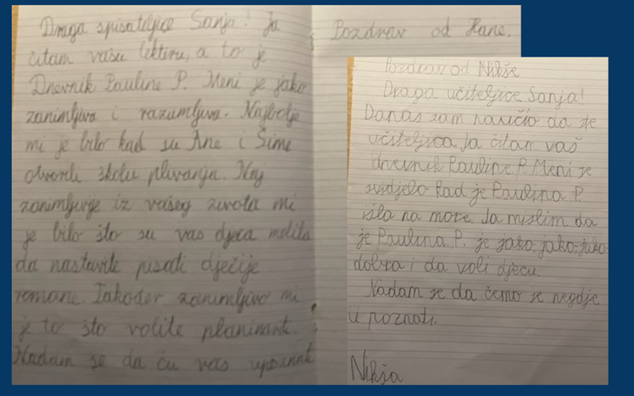 Draga spisateljice Sanja! Ja
čitam vašu lekturu, a to je
Dnevnik Pauline P. Meni je jako
zanimljiva i razumljiva. Najbolje
mi je bilo kad su Ane i Šime
otvorili školu plivanja. Naj
zanimljivije iz vašeg života mi
je bilo što su vas djeca molila
da nastavite pisati dječije
romane. Također zanimljivo mi
je to što volite planinarit.
Nadam se da ću vas upoznat
Pozdrav od Hane.
Pozdrav od Nikše
Draga učiteljice Sanja!
Danas sam naučio da ste
učiteljica. Ja čitam vaš
dnevnik Pauline P. Meni se
svidjelo kad je Paulina P.
išla na more. Ja mislim da
je Paulina P. je jako, jako, jako
dobra i da voli djecu.
Nadam se da ćemo se negdje
upoznati.
Nikša